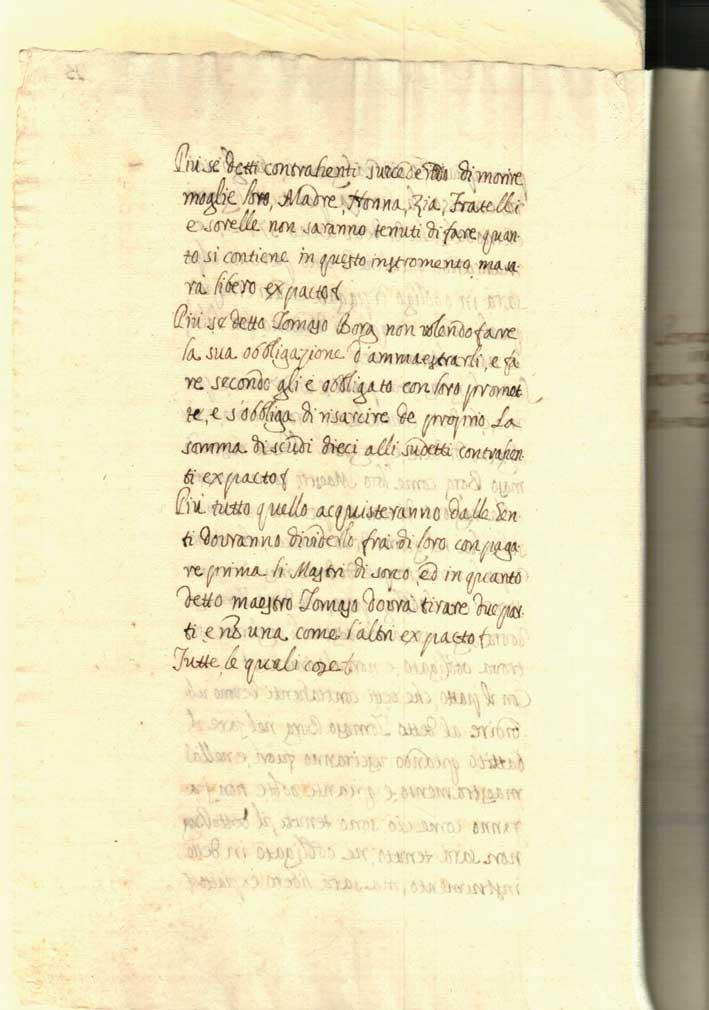 Più se detti contrahenti succedendo di morire
moglie loro, Madre, Nonna, Zia, Fratelli
e sorelle non saranno tenuti di fare quan-
to si contiene in questo instromento, ma sa-
rà libero ex pacto
Più se detto Tomaso Borg non volendo fare
la sua obbligazione d'ammaestrarli, e fa
re secondo gli è obbligato con loro promet
te, e s'obbliga di risarcire de proprio La
somma di scudi dieci alli sudetti contrahen-
ti ex pacto
Più tutto quello acquisteranno dalle Gen-
ti dovranno dividerlo frà di loro con paga-
re prima li Mastri di ed in quanto
detto maestro Tomaso dovrà tirare due par-
ti, e una come l'altri ex pacto
Tutte le quali cose